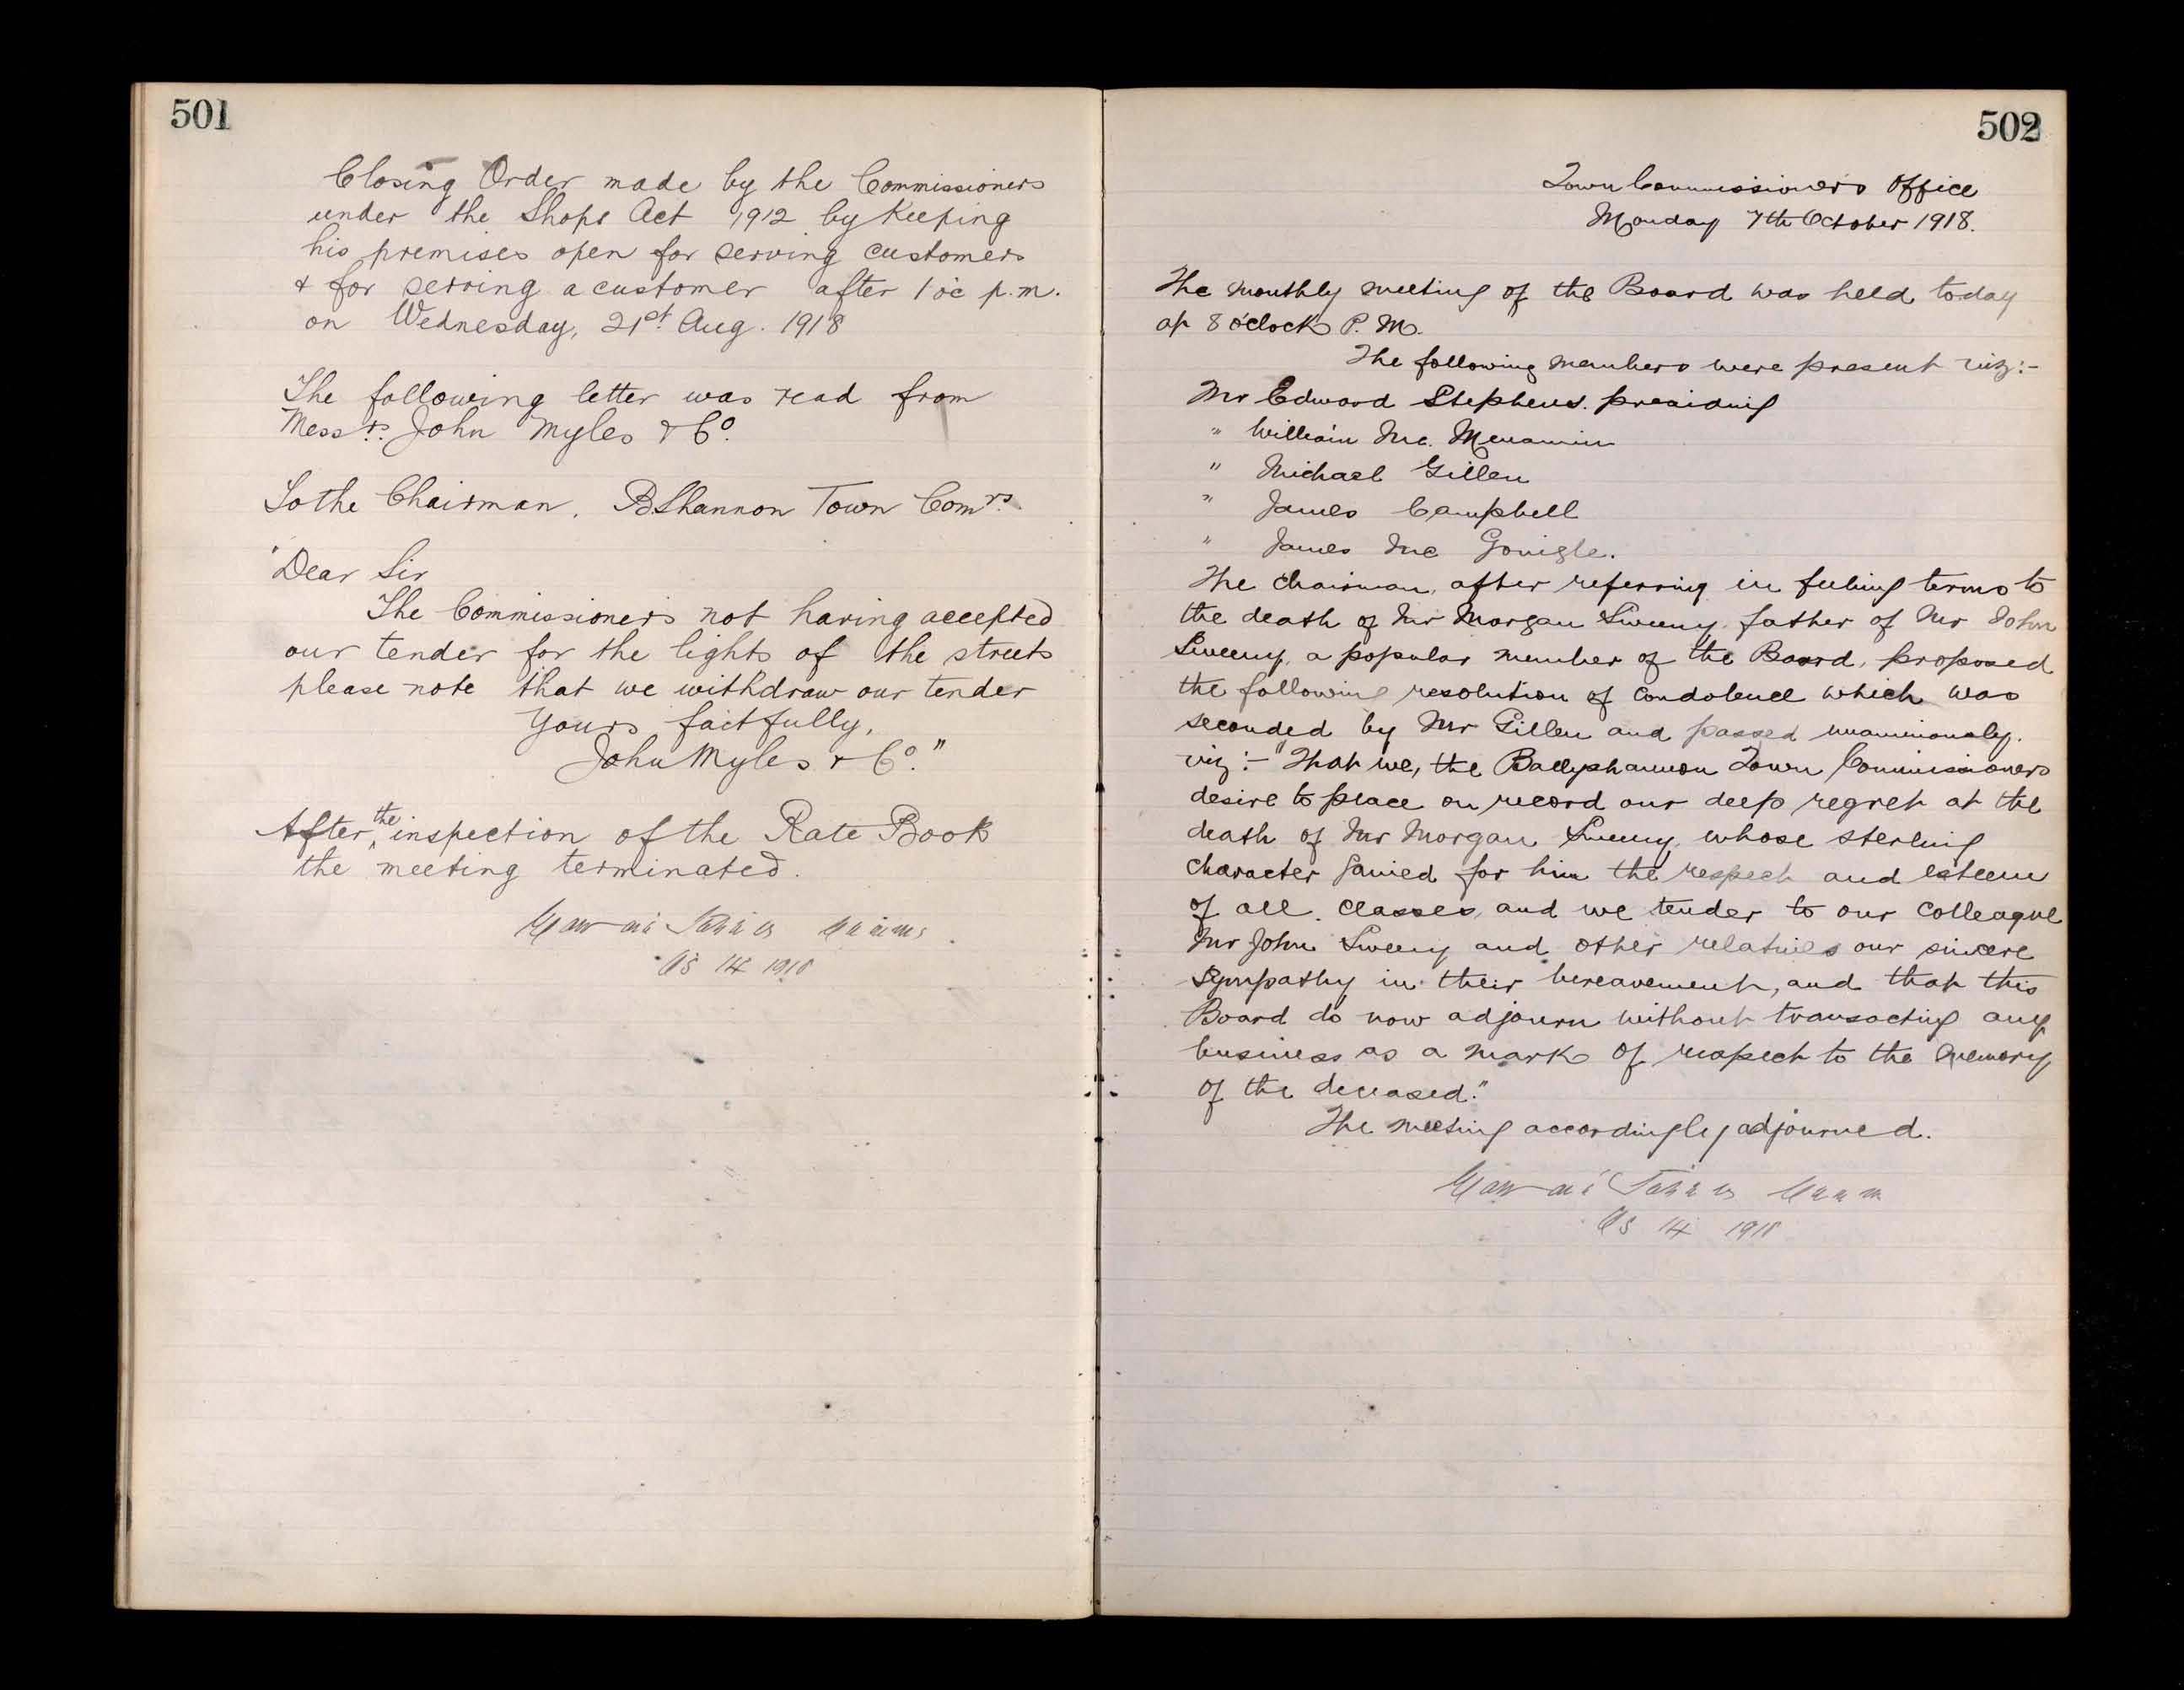 501
Closing Order made by the Commissioners
under the Shops Act 1912 by keeping
his premises open for serving customers
& for serving a customer after 1 oc p.m.
on Wednesday, 21st Aug. 1918
The following letter was read from
Messrs. John Myles & Co.
To the Chairman, BShannon Town Comrs.
"Dear Sir
The Commissioners not having accepted
our tender for the lights of the streets
please note that we withdraw our tender
Yours faitfully,
John Myles & Co."
After the inspection of the Rate Book
the meeting terminated.
14 1918
502
Town Commissioners Office
Monday 7th October 1918.
The monthly meeting of the Board was held today
at 8 o'clock P.M.
The following members were present viz:-
Mr Edward Stephens. presiding
" William Mc. Menamin
" Michael Gillen
" James Campbell
" James Mc Gonigle.
The Chairman, after referring in feeling terms to
the death of Mr Morgan Sweeny, father of Mr John
Sweeny, a popular member of the Board, proposed
the following resolution of condolence which was
seconded by Mr Gillen and passed unanimously.
viz:- "That we, the Ballyshannon Town Commissioners
desire to place on record our deep regret at the
death of Mr Morgan Sweeny, whose sterling
character gained for him the respect and esteem
of all classes, and we tender to our colleague
Mr John Sweeny and other relatives our sincere
sympathy in their bereavement, and that this
Board do now adjourn without transacting any
business as a mark of respect to the memory
of the deceased."
The meeting accordingly adjourned.
14 1918